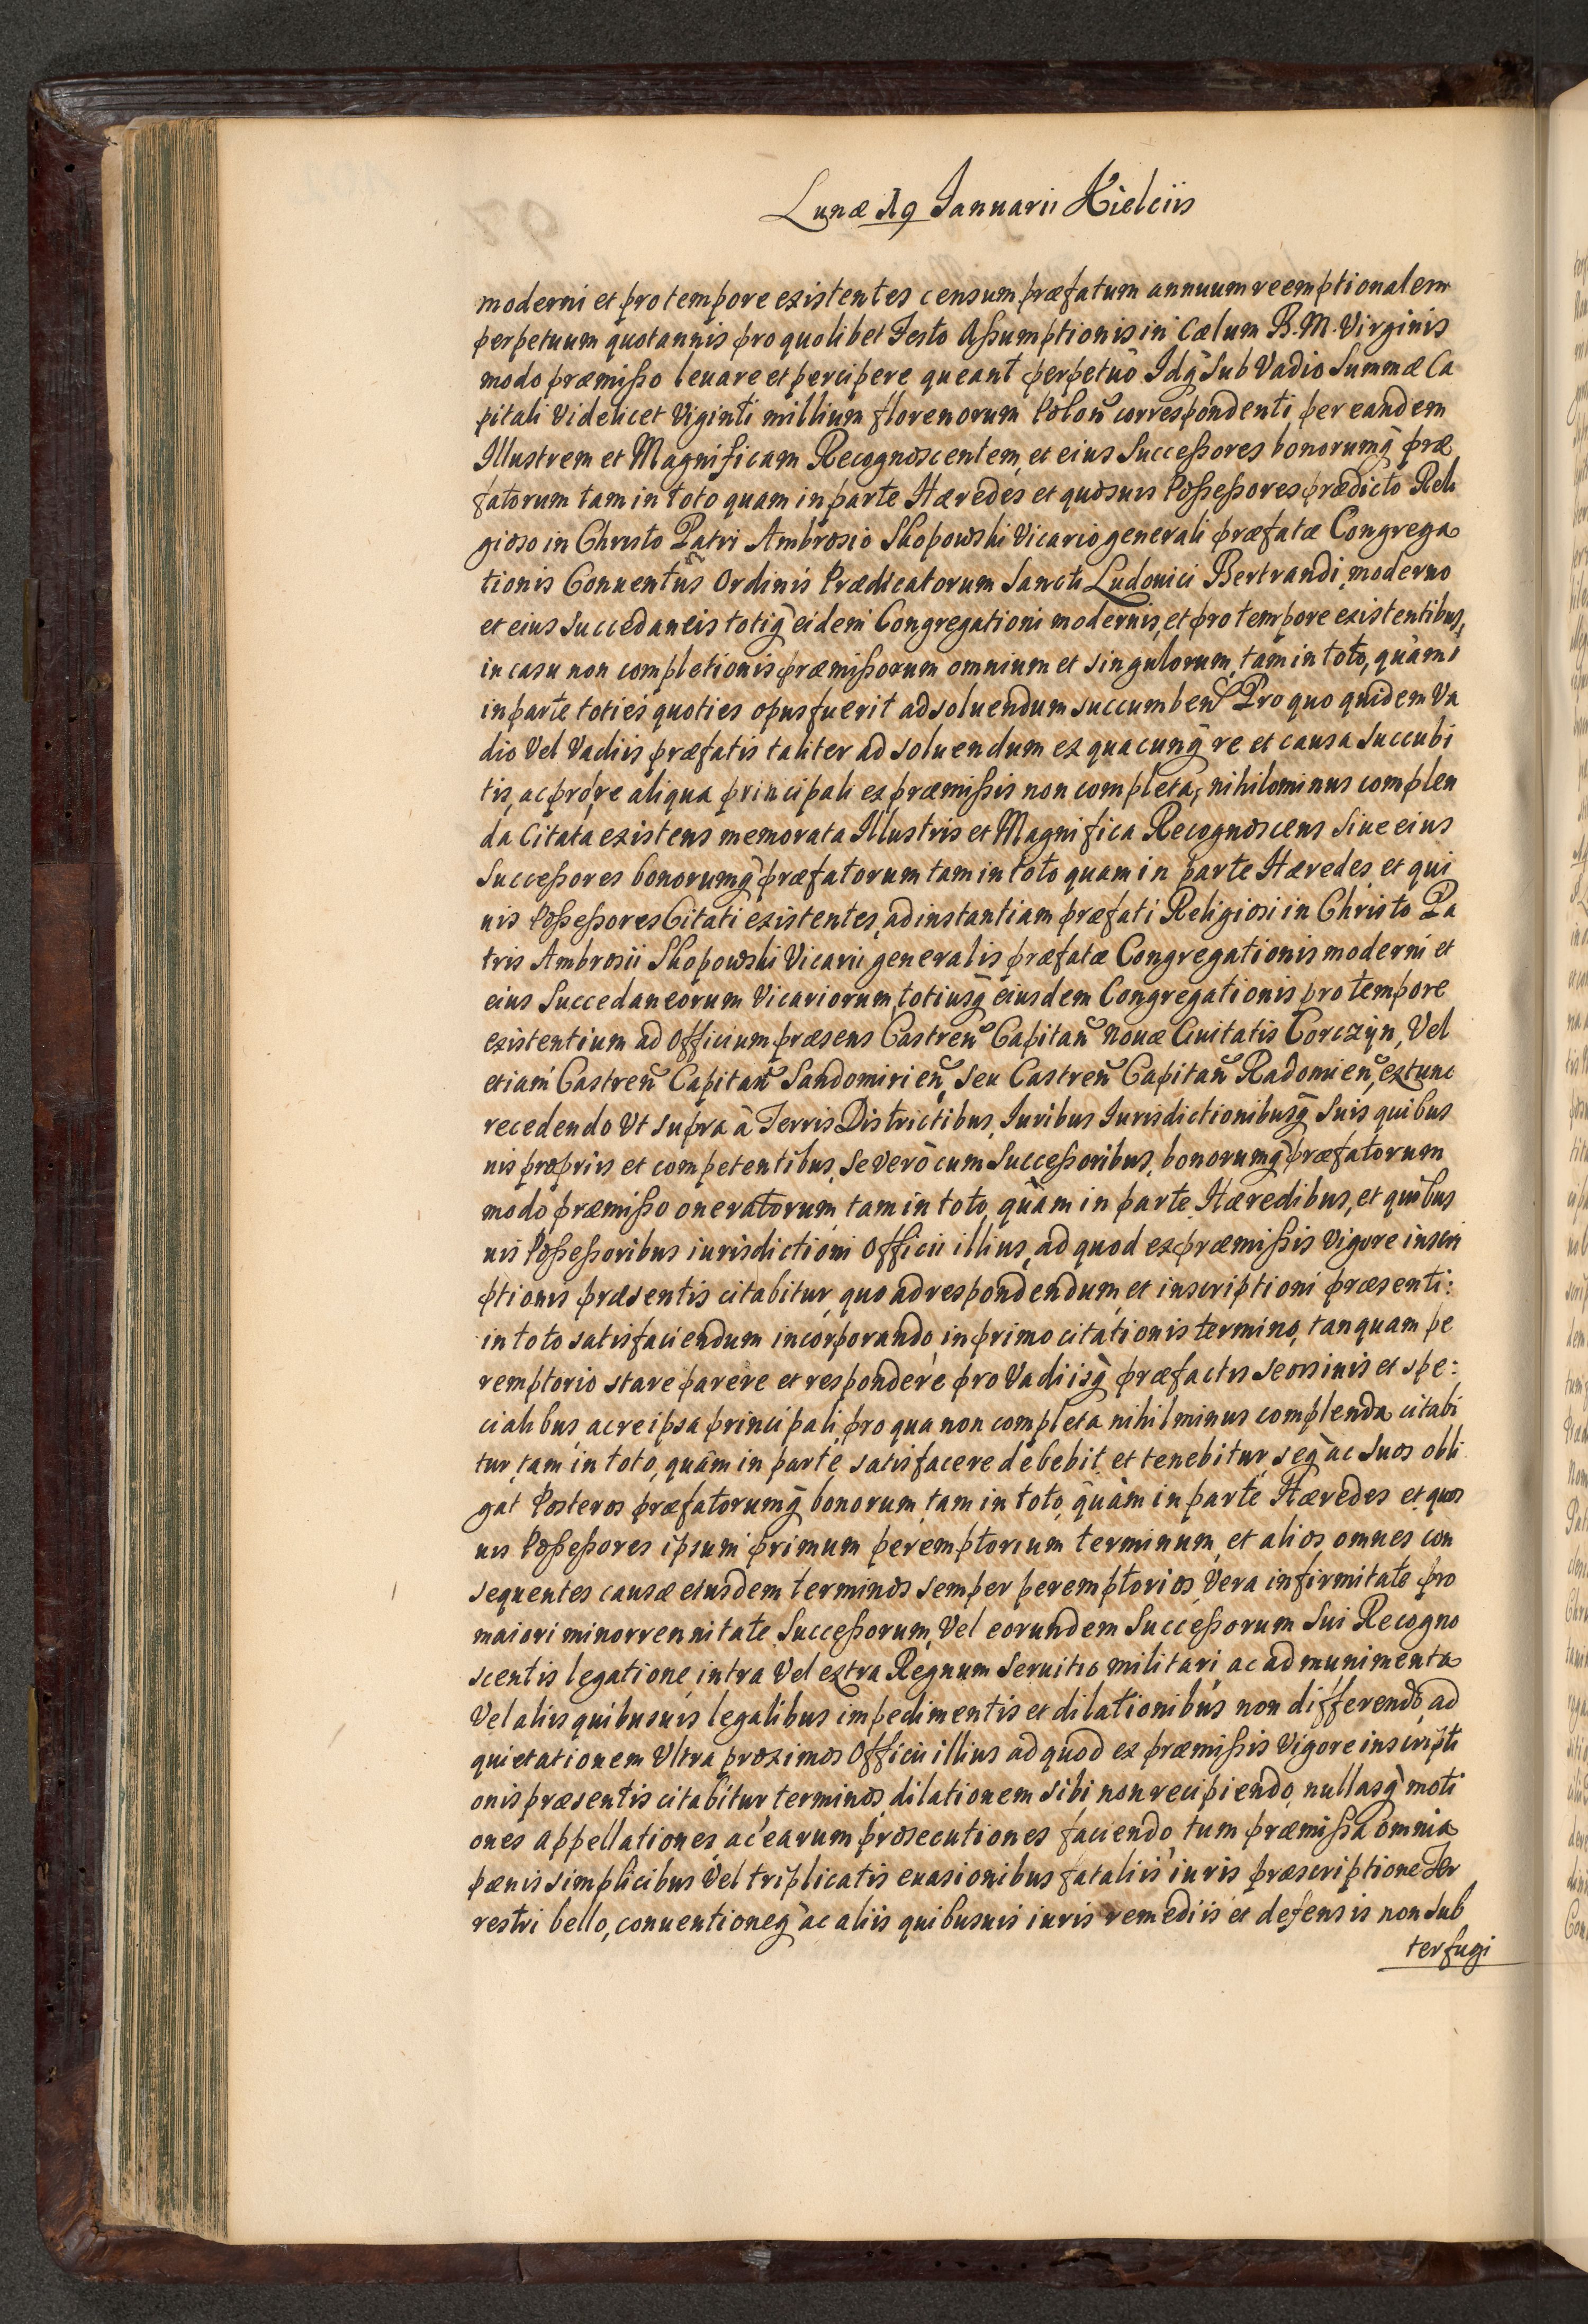 Lunæ 19 Ianuarii Kielciis
moderni et pro tempore existentes censum præfatum annuum reemptionalem
perpetuum quotannis pro quolibet Festo Assumptionis in Cælum B. M. Virginis
modo præmisso leuare et percipere queant perpetuò Idq̃ Sub Vadio Summæ Ca
pitali Videlicet Viginti millium florenorum Polon̄ correspondenti per eandem
Illustrem et Magnificam Recognoscentem, et eius Successores bonorumq̃ præ
fatorum tam in toto quam in parte Hæredes et quosuis Possessores prædicto Reli
gioso in Christo Patri Ambrosio Skopowski Vicario generali præfatæ Congrega
tionis Conuentus Ordinis Prædicatorum Sancti Ludouici Bertrandi, moderno
et eius Succedaneis totiq̃ eidem Congregationi modernis, et pro tempore existentibus,
in casu non completionis præmissorum omnium et singulorum, tam in toto, quàm
in parte toties quoties opus fuerit ad soluendum succumben̄ Pro quo quidem Va
dio Vel Vadiis præfatis taliter ad soluendum ex quacunq̃ re et causa Succubi
tis, ac pro re aliqua principali ex præmissis non completa, nihilominus complen
da Citata existens memorata Illustris et Magnifica Recognoscens Siue eius
Successores bonorumq̃ præfatorum tam in toto quam in parte Hæredes, et qui
uis Possessores Citati existentes, ad instantiam præfati Religiosi in Christo Pa
tris Ambrosii Skopowski Vicarii generalis præfatæ Congregationis moderni et
eius Succedaneorum Vicariorum, totiusq̃ eiusdem Congregationis pro tempore
existentium ad Officium præsens Castren̄ Capitan̄ Nouæ Ciuitatis Corczyn, Vel
etiam Castren̄ Capitan̄ Sandomirien̄, Seu Castren̄ Capitan̄ Radomien̄, extunc
recedendo Vt supra à Terris Districtibus, Iuribus Iurisdictionibusq̃ Suis quibus
uis propriis et competentibus, Se verò cum Successoribus, bonorumq̃ præfatorum
modo præmisso oneratorum, tam in toto, quàm in parte Hæredibus, et quibus
uis Possessoribus iurisdictioni Officii illius, ad quod ex præmissis Vigore inscri
ptionis præsentis citabitur, quo ad respondendum, et inscriptioni præsenti:
in toto satisfaciendum incorporando, in primo citationis termino, tanquam pe
remptorio stare parere et respondere pro Vadiisq̃ præfactis seorsiuis et spe:
cialibus ac re ipsa principali, pro qua non completa nihilminus complenda citabi
tur, tam in toto, quàm in parte satisfacere debebit, et tenebitur, seq̃ ac Suos obli
gat Posteros præfatorumq̃ bonorum, tam in toto, quàm in parte Hæredes et quos
uis Possessores ipsum primum peremptorium terminum, et alios omnes con
sequentes causæ eiusdem terminos semper peremptorios, Vera infirmitate pro
maiori minorrennitate Successorum, Vel eorundem Successorum Sui Recogno
scentis legatione, intra Vel extra Regnum Seruitio militari, ac ad munimenta
Vel aliis quibusuis legalibus impedimentis et dilationibus non differendo, ad
quietationem Vltra proximos Officii illius ad quod ex præmissis Vigore inscripti
onis præsentis citabitur terminos, dilationem sibi non recipiendo, nullasq̃ moti
ones appellationes, ac earum prosecutiones faciendo, tum præmissa omnia
pænis simplicibus Vel triplicatis euasionibus fataliis iuris præscriptione Ter
restri bello, conuentioneq̃ ac aliis quibusuis iuris remediis et defensis non Sub
terfugi